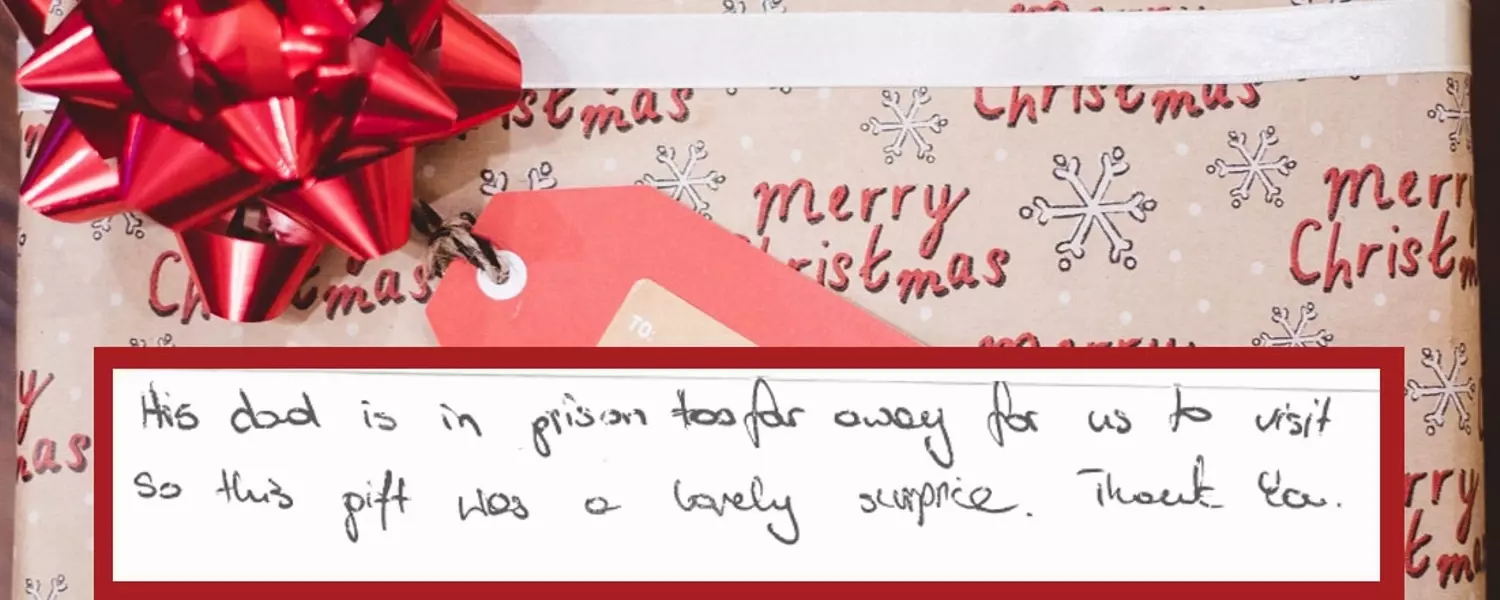 Christmas
Christmas
Merry
Christmas
Merry
Christmas
Christmas
TO:
His dad is in prison too far away for us to visit
So this gift was a lovely surprise. Thank You.